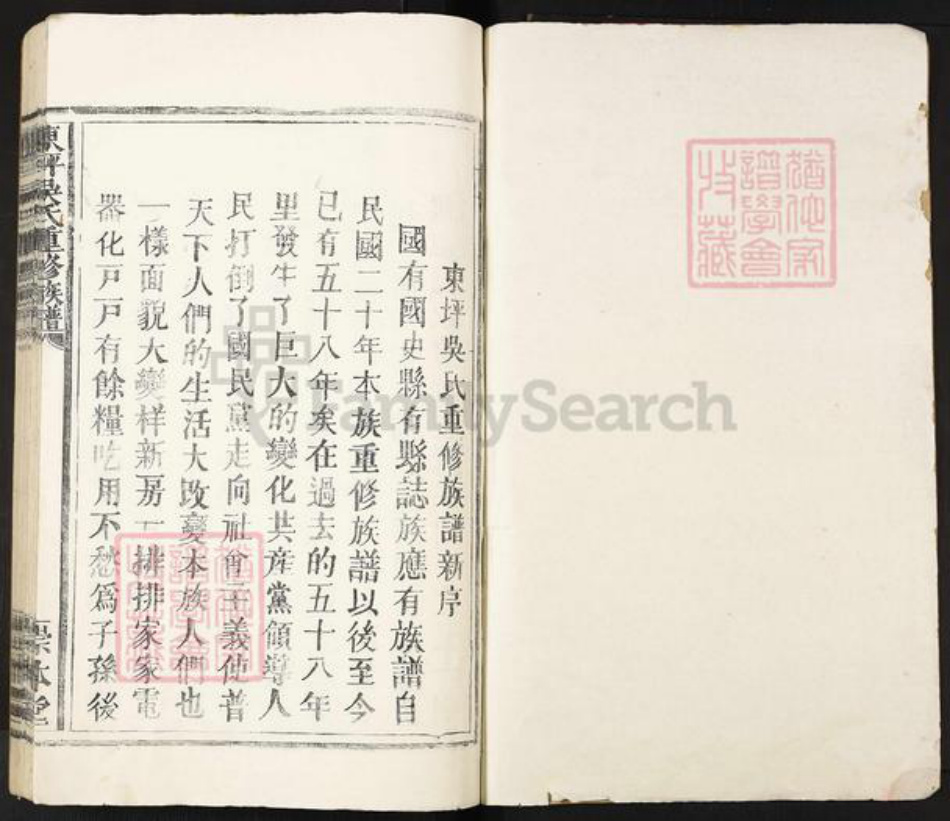 猶他家
譜學會
收藏
東坪吳氏重修族譜新序
國有國史縣有縣誌族應有族譜自
民國二十年本族重修族譜以後至今
已有五十八年矣在過去的五十八年
里發生了巨大的變化共產黨領導人
民打倒了國民黨走向社會主義使普
天下人們的生活大改變本族人們也
一樣面貌大變样新房一排排家家電
器化戸戸有餘糧吃用不愁為子孫後
東坪吳氏重修族譜
本堂
FamilySearch